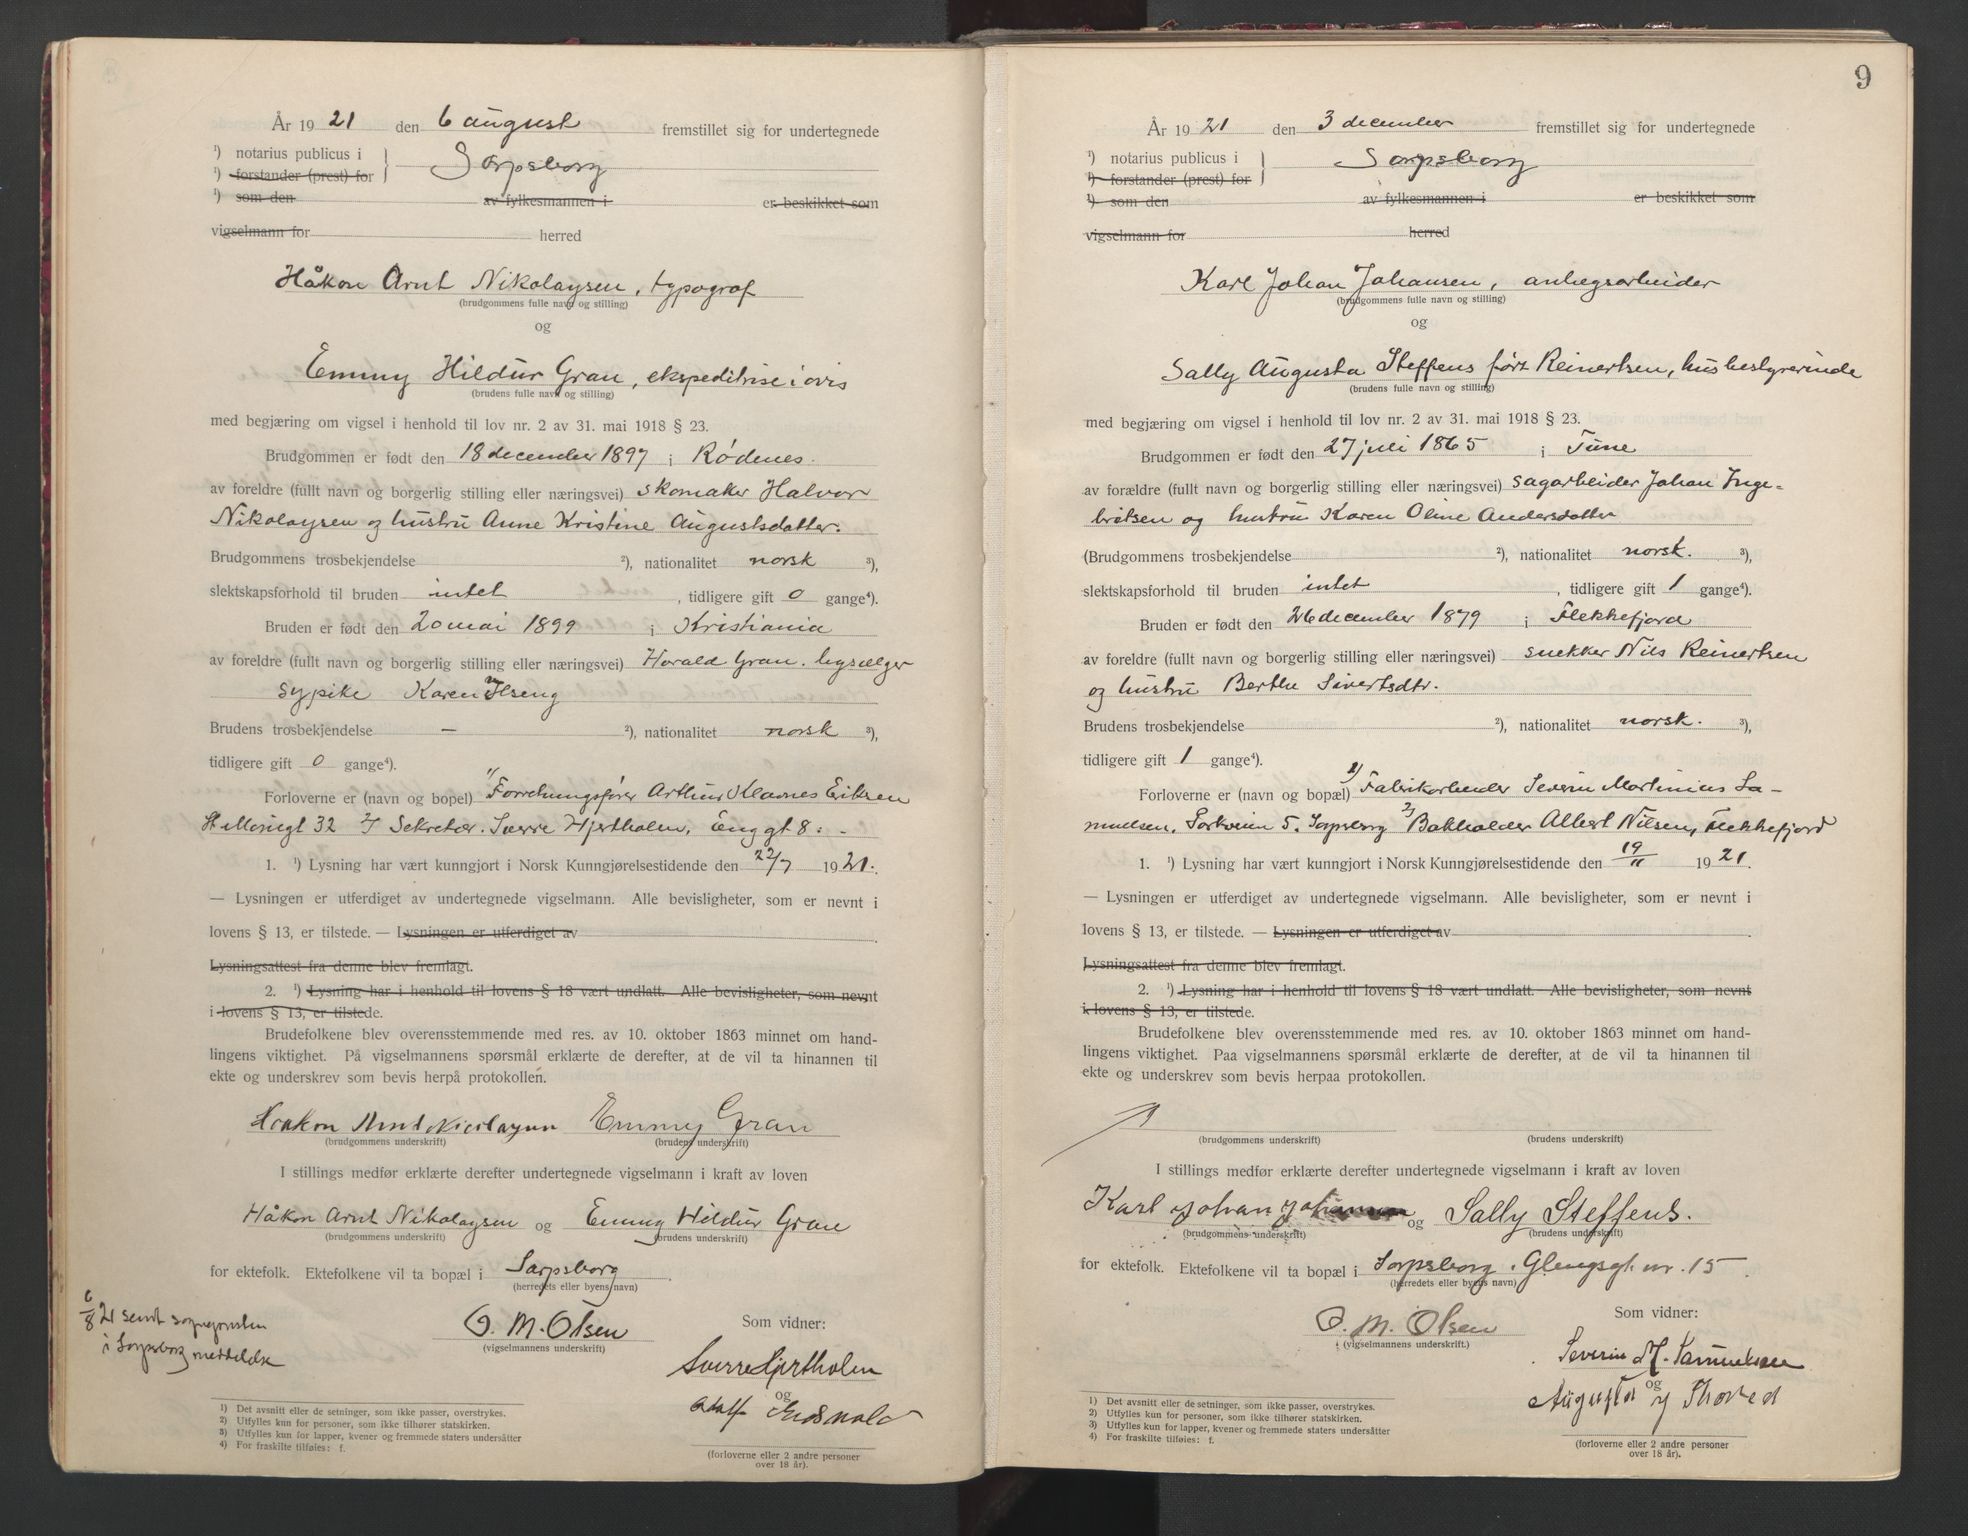 År 1921 den 6 august fremstillet sig for undertegnede
¹) notarius publicus i
¹) forstander (prest) for
Sarpsborg
¹) som den av fylkesmannen i er beskikket som
vigselmann for herred
Håkon Arnt Nikolaysen, typograf
(brudgommens fulle navn og stilling)
og
Emmy Hildur Gran, ekspeditrise i avis
(brudens fulle navn og stilling)
med begjæring om vigsel i henhold til lov nr. 2 av 31. mai 1918 § 23.
Brudgommen er født den 18 december 1897 i Rødenes.
av foreldre (fullt navn og borgerlig stilling eller næringsvei) skomaker Halvor
Nikolaysen og hustru Anne Kristine Augustsdatter.
Brudgommens trosbekjendelse ²), nationalitet norsk ³),
slektskapsforhold til bruden intet, tidligere gift 0 gange⁴).
Bruden er født den 20 mai 1899 i Kristiania
av foreldre (fullt navn og borgerlig stilling eller næringsvei) Harald Gran.
sypike Karen
Brudens trosbekjendelse — ²), nationalitet norsk ³),
tidligere gift 0 gange⁴).
Forloverne er (navn og bopel) 1/ Forretningsfører Arthur Klavnes Eriksen
St Mariegt 32 2/ Sekretær. Sverre Hjertholm, Enggt 8: -
1. ¹) Lysning har vært kunngjort i Norsk Kunngjørelsestidende den 22/7 1921.
— Lysningen er utferdiget av undertegnede vigselmann. Alle bevisligheter, som er nevnt i
lovens § 13, er tilstede. — Lysningen er utferdiget av
Lysningsattest fra denne blev fremlagt.
2. ¹) Lysning har i henhold til lovens § 18 vært undlatt. Alle bevisligheter, som nevnt
i lovens § 13, er tilstede.
Brudefolkene blev overensstemmende med res. av 10. oktober 1863 minnet om hand-
lingens viktighet. På vigselmannens spørsmål erklærte de derefter, at de vil ta hinannen til
ekte og underskrev som bevis herpå protokollen.
Haakon Arnt Nicolaysen Emmy Gran
(brudgommens underskrift) (brudens underskrift)
I stillings medfør erklærte derefter undertegnede vigselmann i kraft av loven
Håkon Arnt Nikolaysen og Emmy Hildur Gran
(brudgommens underskrift) (brudens underskrift)
for ektefolk. Ektefolkene vil ta bopæl i Sarpsborg
(herredets eller byens navn)
6/8 21 sendt sognepresten
i Sarpsborg meddelelse
O. M. Olsen
(vigselmannens underskrift)
Som vidner:
Sverre Hjertholm
og
Adolf
(forloverne eller 2 andre personer
over 18 år).
1) Det avsnitt eller de setninger, som ikke passer, overstrykes.
2) Utfylles kun for personer, som ikke tilhører statskirken.
3) Utfylles kun for lapper, kvener og fremmede staters undersåtter
4) For fraskilte tilføies: f.
9
År 1921 den 3 december fremstillet sig for undertegnede
¹) notarius publicus i
¹) forstander (prest) for
Sarpsborg
¹) som den av fylkesmannen i er beskikket som
vigselmann for herred
Karl Johan Johansen, anlegsarbeider
(brudgommens fulle navn og stilling)
og
Sally Augusta Steffens født Reinertsen, husbestyrerinde
(brudens fulle navn og stilling)
med begjæring om vigsel i henhold til lov nr. 2 av 31. mai 1918 § 23.
Brudgommen er født den 27 juli 1865 i Tune
av forældre (fullt navn og borgerlig stilling eller næringsvei) sagarbeider Johan Inge=
bretsen og hustru Karen Oline Andersdatter
(Brudgommens trosbekjendelse ²), nationalitet norsk. ³),
slektskapsforhold til bruden intet, tidligere gift 1 gange⁴).
Bruden er født den 26 december 1879 i Flekkefjord
av foreldre (fullt navn og borgerlig stilling eller næringsvei) snekker Nils Reinertsen
og hustru Berthe Sivertsdtr.
Brudens trosbekjendelse ²), nationalitet norsk. ³),
tidligere gift 1 gange⁴).
Forloverne er (navn og bopæl) 1) Fabrikarbeider Severin Martinius Sa-
muelsen, 5. Sarpsborg 2/ Bokholder Albert Nilsen, Flekkefjord
1. ¹) Lysning har vært kunngjort i Norsk Kunngjørelsestidende den 19/11 1921.
— Lysningen er utferdiget av undertegnede vigselmann. Alle bevisligheter, som er nevnt i
lovens § 13, er tilstede. — Lysningen er utferdiget av
Lysningsattest fra denne blev fremlagt.
2. ¹) Lysning har i henhold til lovens § 18 vært undlatt. Alle bevisligheter, som nevnt
i lovens § 13, er tilstede.
Brudefolkene blev overensstemmende med res. av 10. oktober 1863 minnet om hand-
lingens viktighet. Paa vigselmannens spørsmål erklærte de derefter, at de vil ta hinannen til
ekte og underskrev som bevis herpaa protokollen.
(brudgommens underskrift) (brudens underskrift)
I stillings medfør erklærte derefter undertegnede vigselmann i kraft av loven
Karl Johan Johansen og Sally Steffens.
(brudgommens underskrift) (brudens underskrift)
for ektefolk. Ektefolkene vil ta bopæl i Sarpsborg. Glengsgt. nr. 15
(herredets eller byens navn)
O. M. Olsen
(vigselmannens underskrift.)
Som vidner:
Severin M. Samuelsen
og
Augusta
(forloverne eller 2 andre personer
over 18 år).
1) Det avsnitt eller de setninger, som ikke passer, overstrykes.
2) Utfylles kun for personer, som ikke tilhører statskirken.
3) Utfylles kun for lapper, kvener og fremmede staters undersåtter
4) For fraskilte tilføies: f.